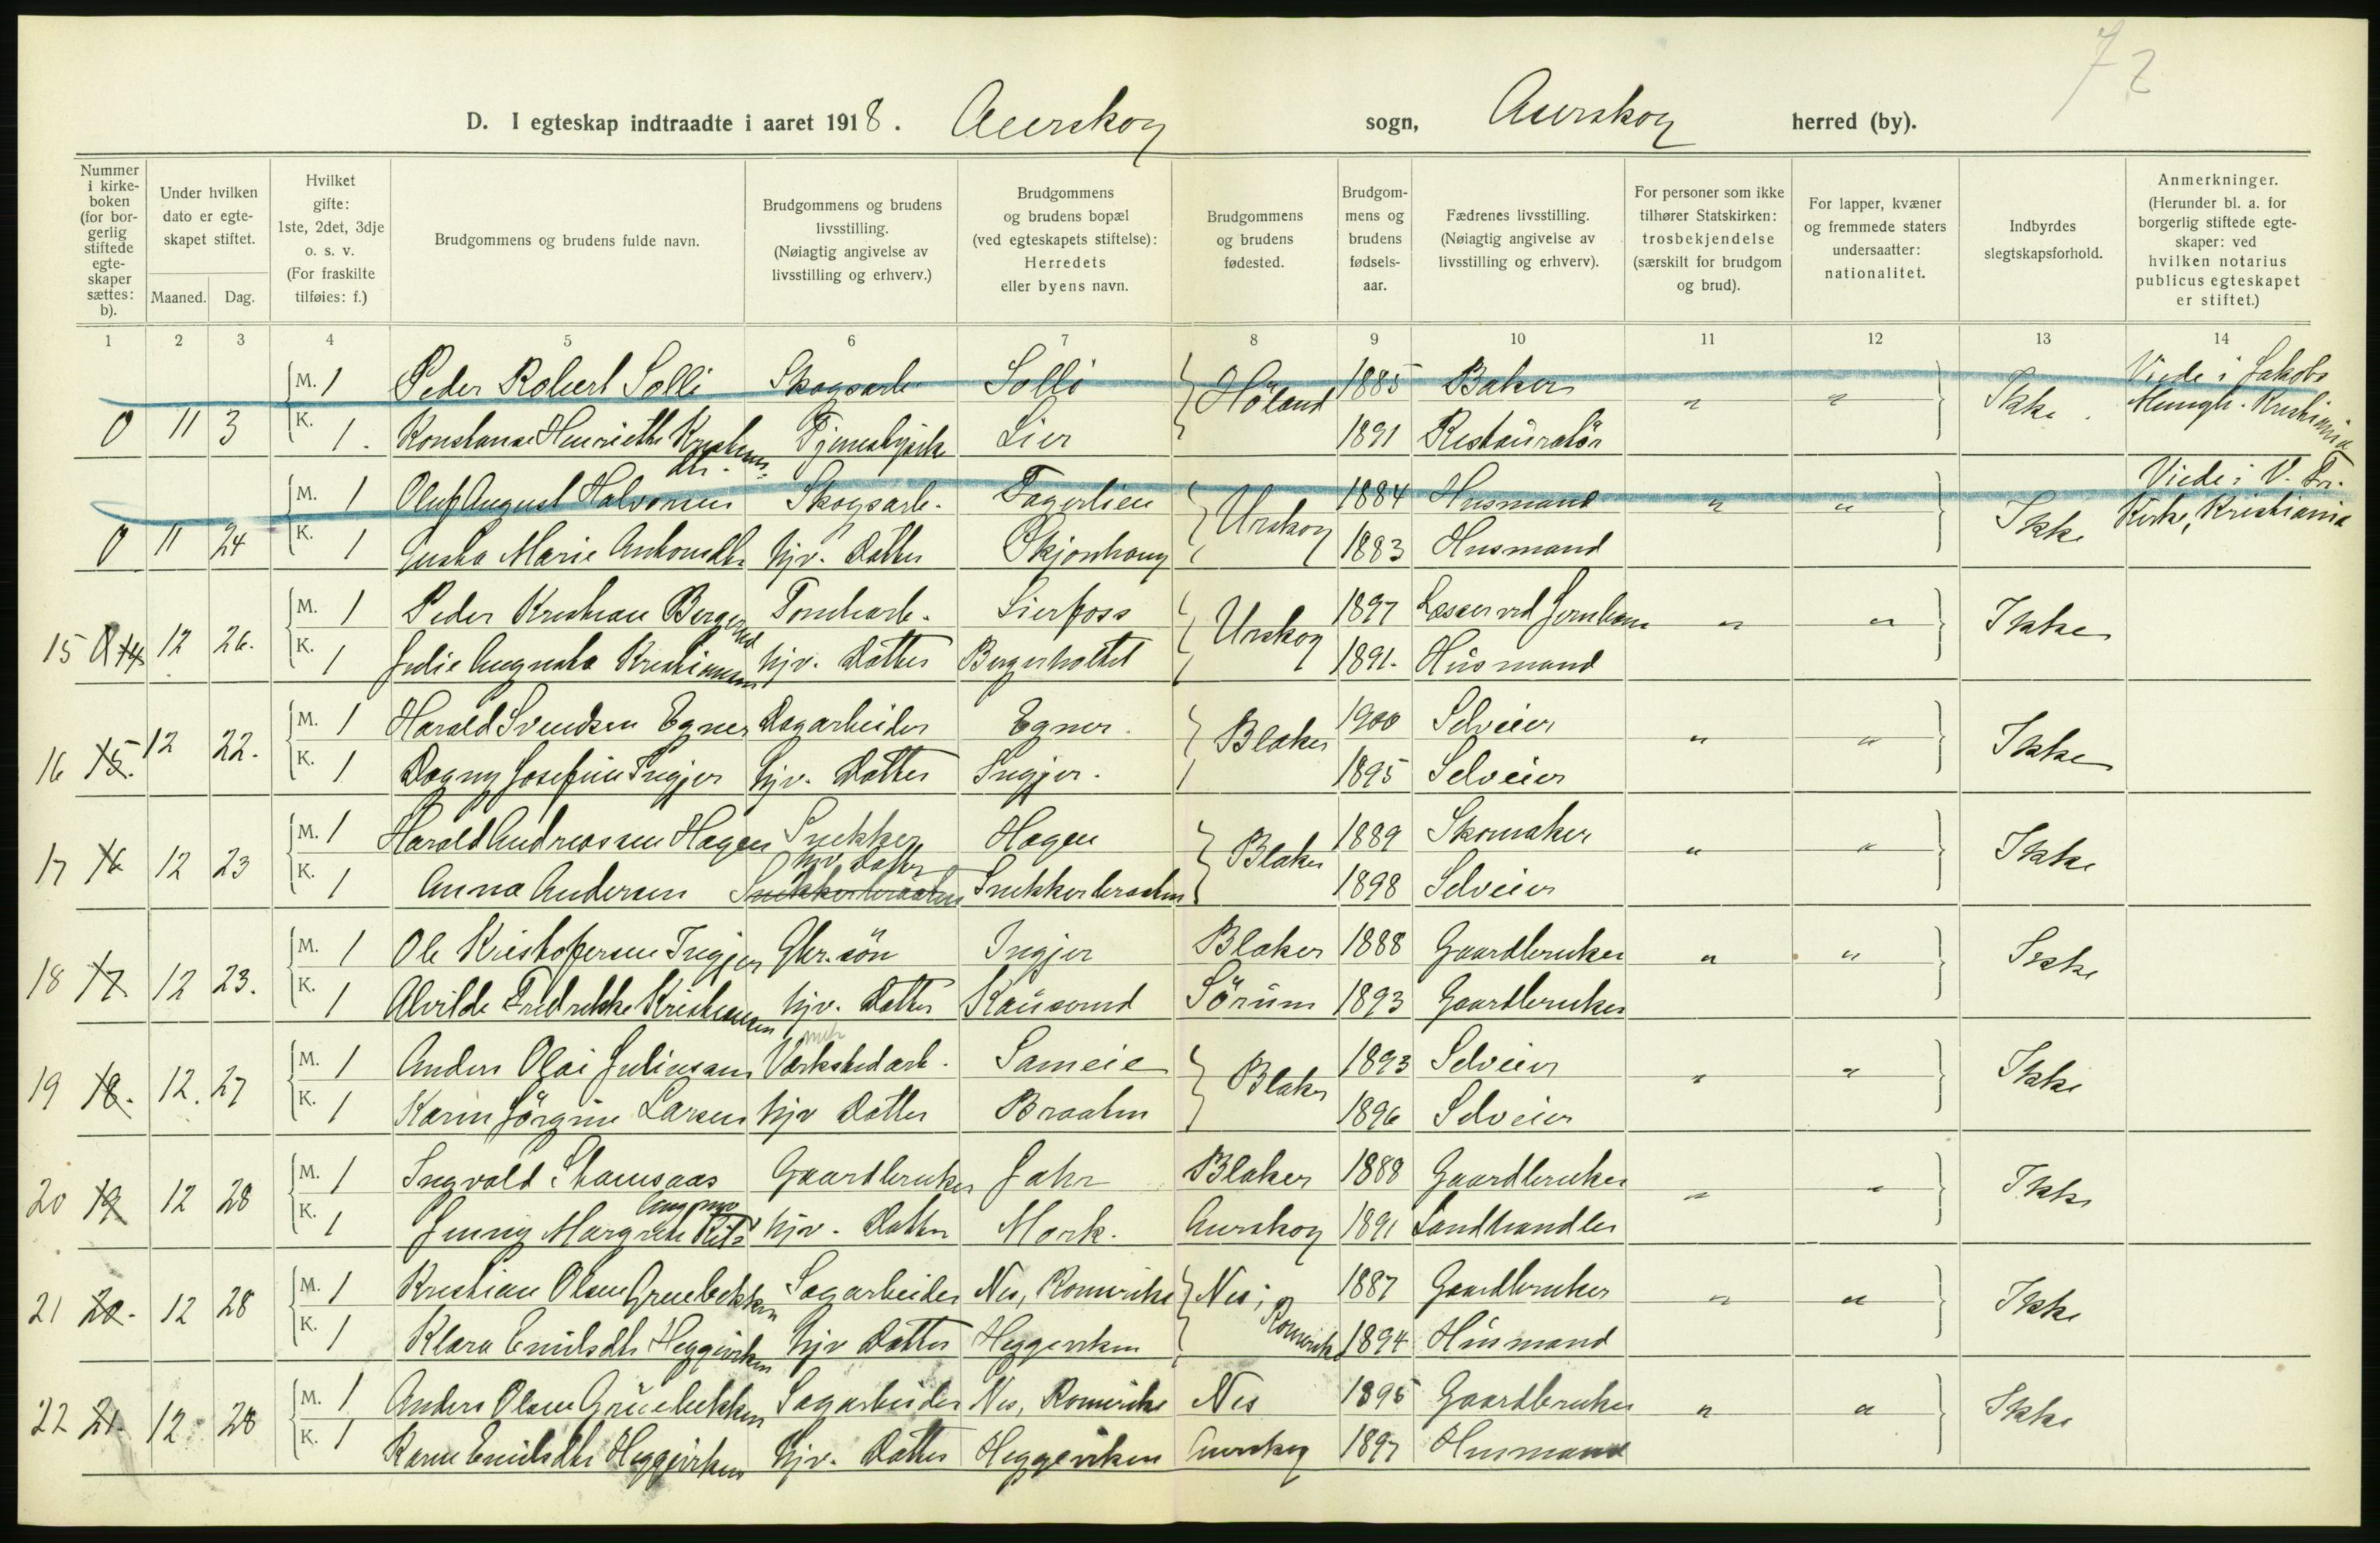 72
D. I egteskap indtraadte i aaret 1918. Aurskog sogn, Aurskog herred (by).
Nummer i kirkeboken (for borgerlig stiftede egteskaper sættes: b).
Under hvilken dato er egteskapet stiftet.
Maaned. Dag.
Hvilket gifte: 1ste, 2det, 3dje o. s. v. (For fraskilte tilføies: f.)
Brudgommens og brudens fulde navn.
Brudgommens og brudens livsstilling. (Nøiagtig angivelse av livsstilling og erhverv.)
Brudgommens og brudens bopæl (ved egteskapets stiftelse): Herredets eller byens navn.
Brudgommens og brudens fødested.
Brudgommens og brudens fødselsaar.
Fædrenes livsstilling. (Nøiagtig angivelse av livsstilling og erhverv).
For personer som ikke tilhører Statskirken: trosbekjendelse (særskilt for brudgom og brud).
For lapper, kvæner og fremmede staters undersaatter: nationalitet.
Indbyrdes slegtskapsforhold.
Anmerkninger. (Herunder bl. a. for borgerlig stiftede egteskaper: ved hvilken notarius publicus egteskapet er stiftet.)
1 2 3 4 5 6 7 8 9 10 11 12 13 14
M. 1 Peder Robert Solli Skogsarb. Solli Höland 1885 Baker " " Ikke. Viede i Jakobs
0 11 3 K. 1. Konstanse Henriette Kristians- dtr. Tjenestepike Lier 1891 Restauratör Menigh. Kristiania
M. 1 Oluf August Halvorsen Skogsarb. Fagerlien Urskog 1884 Husmand " " Ikke Viede i V. Fri.
0 11 24 K. 1 Gusta Marie Antonsdtr. hjv. Datter Skjønhaug 1883 Husmand Kirke, Kristiania
M. 1 Peder Kristian Bergerud Tomtearb. Lierfoss Urskog 1897 Læsser ved Jernbane " " Ikke
15 14 12 26. K. 1 Julie Augusta Kristiansen hjv. Datter Bergerholtet 1891. Husmand
M. 1 Harald Svendsen Egner Dagarbeider Egner. Blaker 1900 Selveier " " Ikke
16 15. 12 22. K. 1 Dagny Josefine Ingjer hjv. Datter Ingjer. 1895 Selveier
M. 1 Harald Andreassen Hagen Snekker Hagen Blaker 1889 Skomaker " " Ikke
17 16 12 23 K. 1 Anna Andersen Snekkerbraaten hjv. Datter Snekkerbraaten 1898 Selveier
M. 1 Ole Kristoffersen Ingjer Gbr. sön Ingjer Blaker 1888 Gaardbruker " " Ikke
18 17 12 23. K. 1 Alvilde Fredrikke Kristiansen hjv. Datter Kauserud Sörum 1893 Gaardbruker
M. 1 Anders Olai Juliussen Værkstedarb. Sameie Blaker 1893 Selveier " " Ikke
19 18. 12. 27 K. 1 Karen Jörgine Larsen hjv Datter Braaten 1896 Selveier
M. 1 Ingvald Gaardbruker Jahr Blaker 1888 Gaardbruker " " Ikke
20 19 12 28 K. 1 Jenny Margrete hjv. Datter Mork. Aurskog 1891 Landhandler
M. 1 Kristian Olsen Gruebekken Sagarbeider Nes, Romerike Nes, Romerike 1887 Gaardbruker " " Ikke
21 20. 12 28 K. 1 Klara Emilsdtr Heggeviken hjv Datter Heggeviken 1894 Husmand
M. 1 Anders Olsen Gruebekken Sagarbeider Nes, Romerike Nes 1895 Gaardbruker " " Ikke
22 21. 12 28 K. 1 Karen Emilsdtr Heggeviken hjv. Datter Heggeviken Aurskog 1897 Husmand